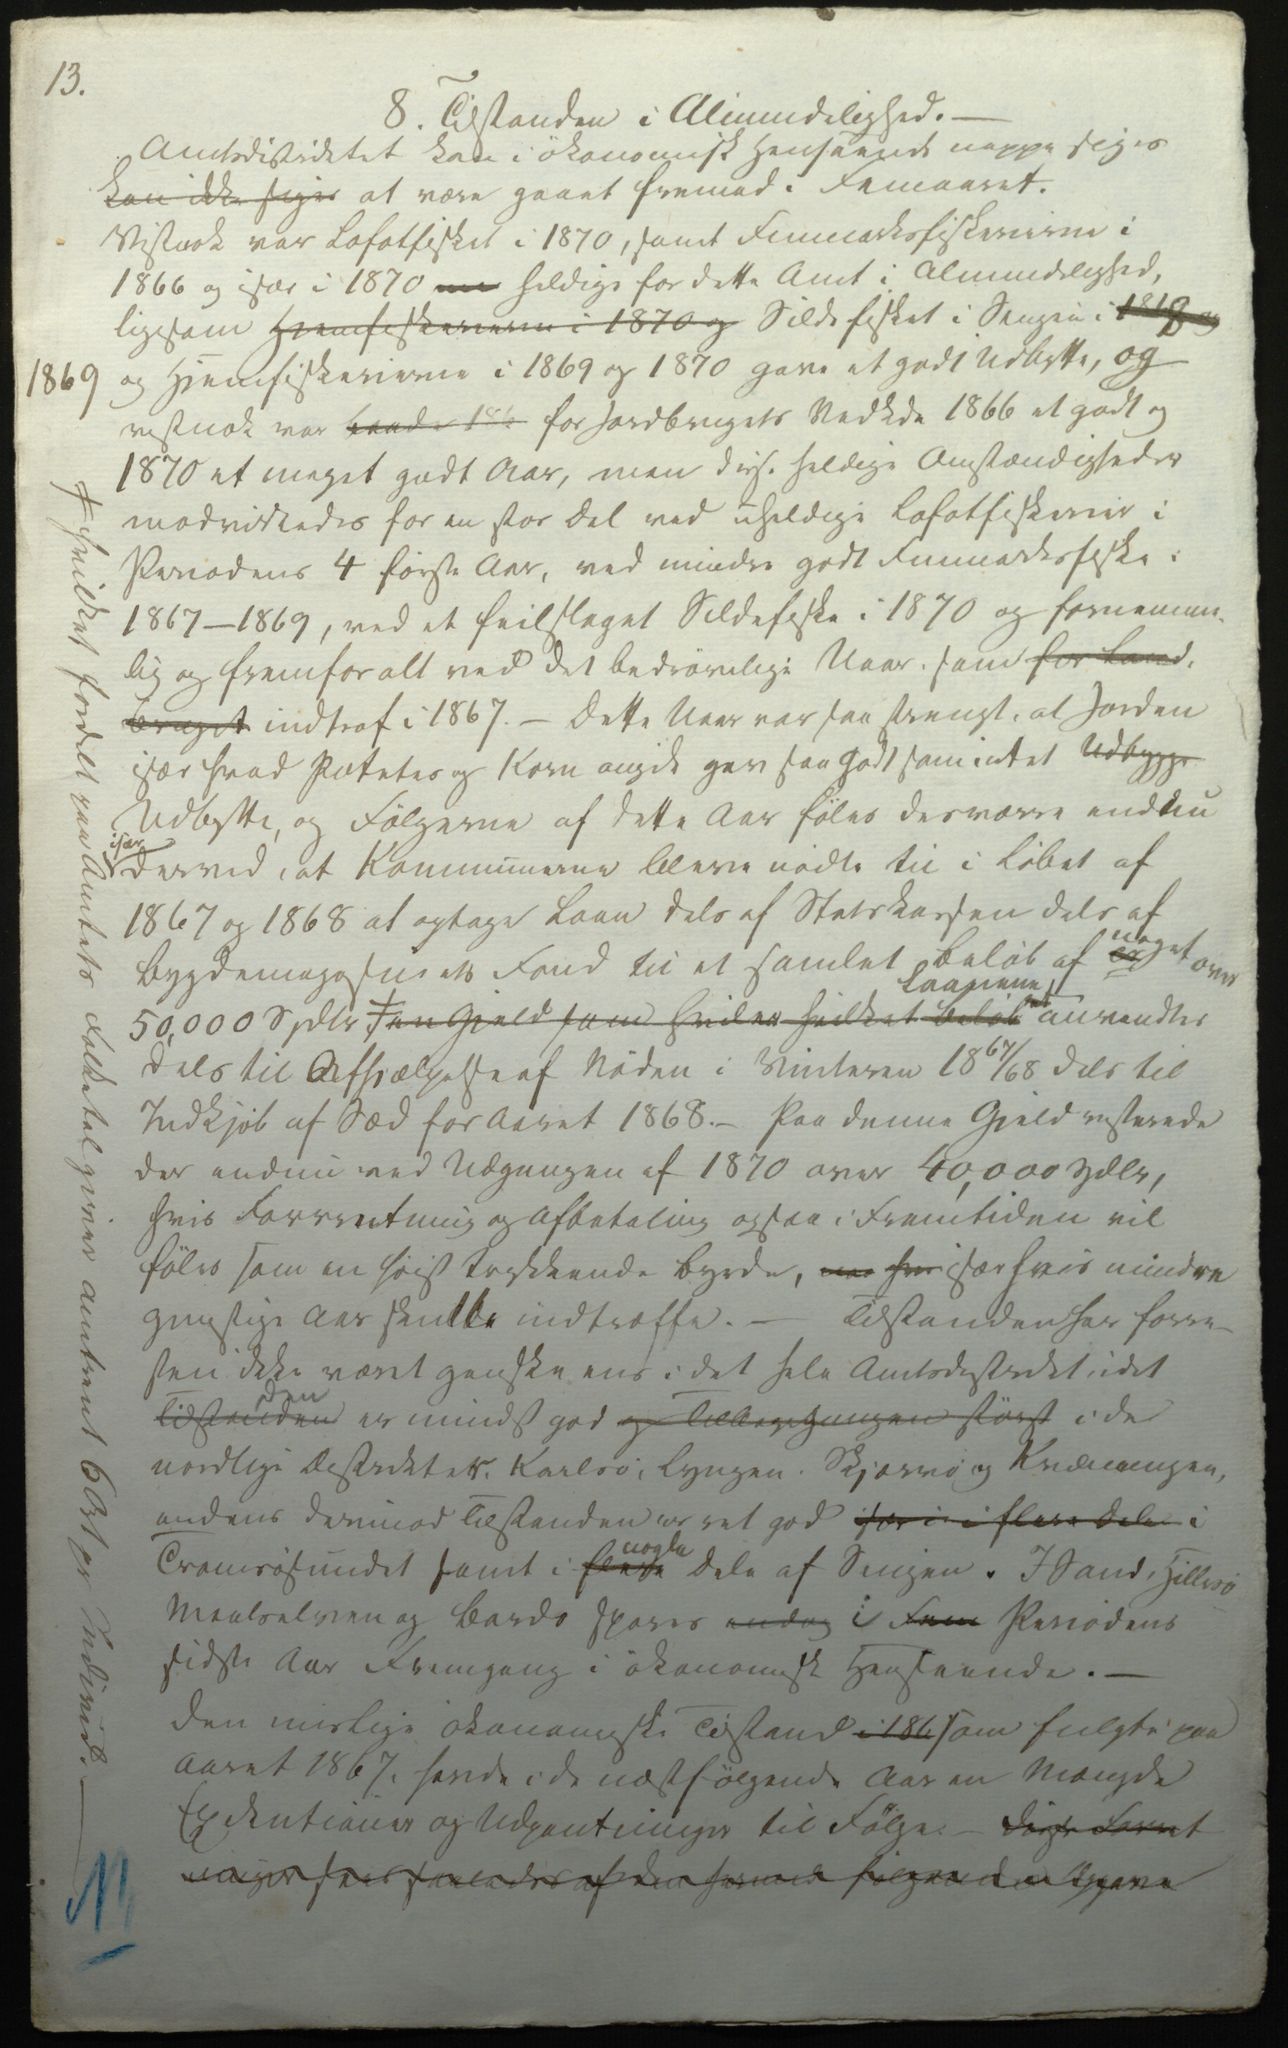 13.
8. Tilstanden i Almindelighed. —
Amtsdistriktet kan i økonomisk Henseende neppe siges
kan ikke siges at være gaaet fremad i Femaaret.
Vistnok var Lofotfisket i 1870, samt Finmarksfiskerierne i
1866 og især i 1870 heldige for dette Amt i Almindelighed,
ligesom Hjemfiskerierne i 1870 og Sildefisket i Senjen i
1869 og Hjemfiskerierne i 1869 og 1870 gave et godt Udbytte, og
vistnok var for Jordbrugets Vedkde 1866 et godt og
1870 et meget godt Aar, men disse heldige Omstændigheder
modvirkedes for en stor Del ved uheldige Lofotfiskerier i
Periodens 4 første Aar, ved mindre godt Finmarksfiske i
1867—1869, ved et feilslaget Sildefiske i 1870 og fornemme-
lig og fremforalt ved det bedrøvelige Uaar som for Land-
bruget indtraf i 1867. — Dette Uaar var saa strengt, at Jorden
især hvad Poteter og Korn angik gav saa godt som intet
Udbytte, og Følgerne af dette Aar føles desværre endnu
især
derved, at Kommunerne bleve nødte til i Løbet af
1867 og 1868 at optage Laan dels af Statskassen dels af
Bygdemagasinets Fond til et samlet Beløb af noget over
Laanene
50,000 Spdlr ǂ en Gjeld som hviler hvilket Beløb anvendtes
dels til Afhjælpelse af Nøden i Vinteren 1867/68 dels til
Indkjøb af Sæd for Aaret 1868. — Paa denne Gjeld resterede
der endnu ved Udgangen af 1870 over 40,000 Spdlr,
hvis Forrentning og Afbetaling ogsaa i Fremtiden vil
føles som en høist trykkende Byrde, især hvis mindre
gunstige Aar skulde indtræffe. — Tilstanden har forre-
sten ikke været ganske ens i det hele Amtsdistrikt, idet
den
Tilstanden er mindst god og Tilbagegangen størst i de
nordlige Distrikter: Karlsø, Lyngen, Skjervø og Kvænangen,
medens derimod Tilstanden er ret god især i flere Dele i
Tromsøsundet samt i nogle flere Dele af Senjen. I Sand, Hillesø
Maalselven og Bardo spores endog i Fem Periodens
sidste Aar Fremgang i økonomisk Henseende. —
Den mislige økonomiske Tilstand i 186 som fulgte paa
Aaret 1867, havde i de næstfølgende Aar en Mængde
Exekutioner og Udpantninger til Følge. —
ǂ hvilket fordelt paa Amtets Folketal giver omtrent 6 Ort pr Individ. —